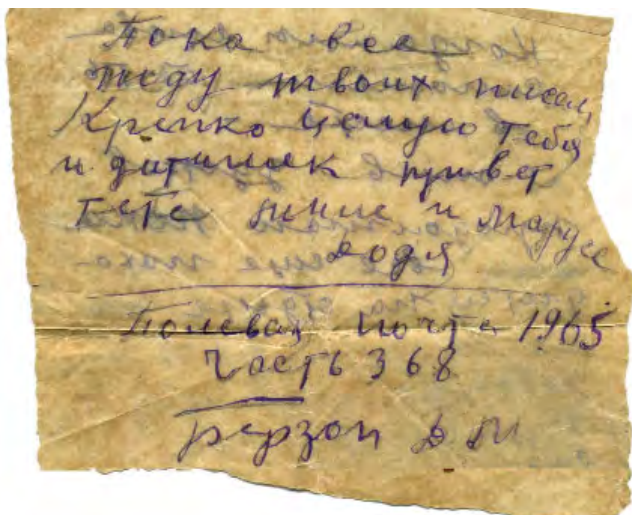 Пока все
жду твоих писем
Крепко целую тебя
и детишек привет
тете Мине и Марусе
Додя
Полевая почта 1965
Часть 368
Д М